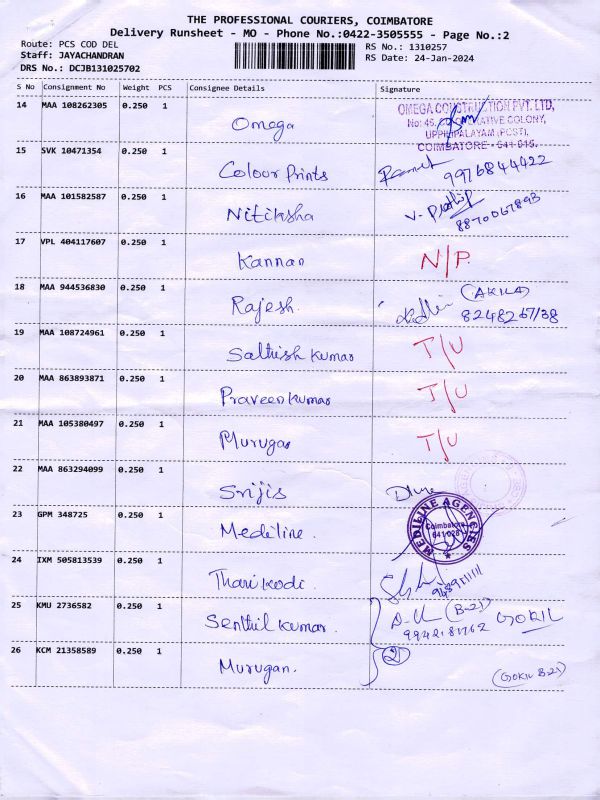 THE PROFESSIONAL COURIERS, COIMBATORE
Delivery Runsheet - MO - Phone No.:0422-3505555 - Page No.:2
Route: PCS COD DEL
RS No.: 1310257
Staff: JAYACHANDRAN
RS Date: 24-Jan-2024
DRS No.: DCJB131025702
S No Consignment No Weight PCS Consignee Details Signature
14 MAA 108262305 0.250 1 Omega
OMEGA CONSTRUCTION PVT. LTD,
No: 45, COLONY,
UPPILIPALAYAM (POST),
COIMBATORE - 641 015.
15 SVK 10471354 0.250 1 Colour Prints 9976844422
16 MAA 101582587 0.250 1 Nitiksha V. 8870067893
17 VPL 404117607 0.250 1 Kannan N/P.
18 MAA 944536830 0.250 1 Rajesh. (AKILA)
8248267138
19 MAA 108724961 0.250 1 Sathish Kumar T/U
20 MAA 863893871 0.250 1 Praveen Kumar T/U
21 MAA 105380497 0.250 1 Murugan T/U
22 MAA 863294099 0.250 1 Srijis
23 GPM 348725 0.250 1 Mediline.
MEDILINE AGENCIES
Coimbatore
641 028
24 IXM 505813539 0.250 1 Thari Kodi
25 KMU 2736582 0.250 1 Senthil Kumar. (B-21) GOKIL
9942181762
26 KCM 21358589 0.250 1 Murugan. 2
(GOKIL B-21)